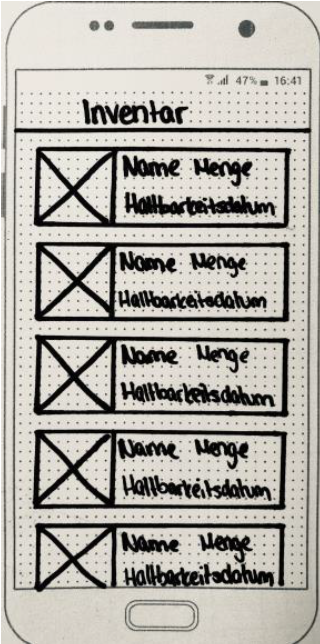 47% 16:41
Inventar
Name Menge
Haltbarkeitsdatum
Name Menge
Haltbarkeitsdatum
Name Menge
Haltbarkeitsdatum
Name Menge
Haltbarkeitsdatum
Name Menge
Haltbarkeitsdatum